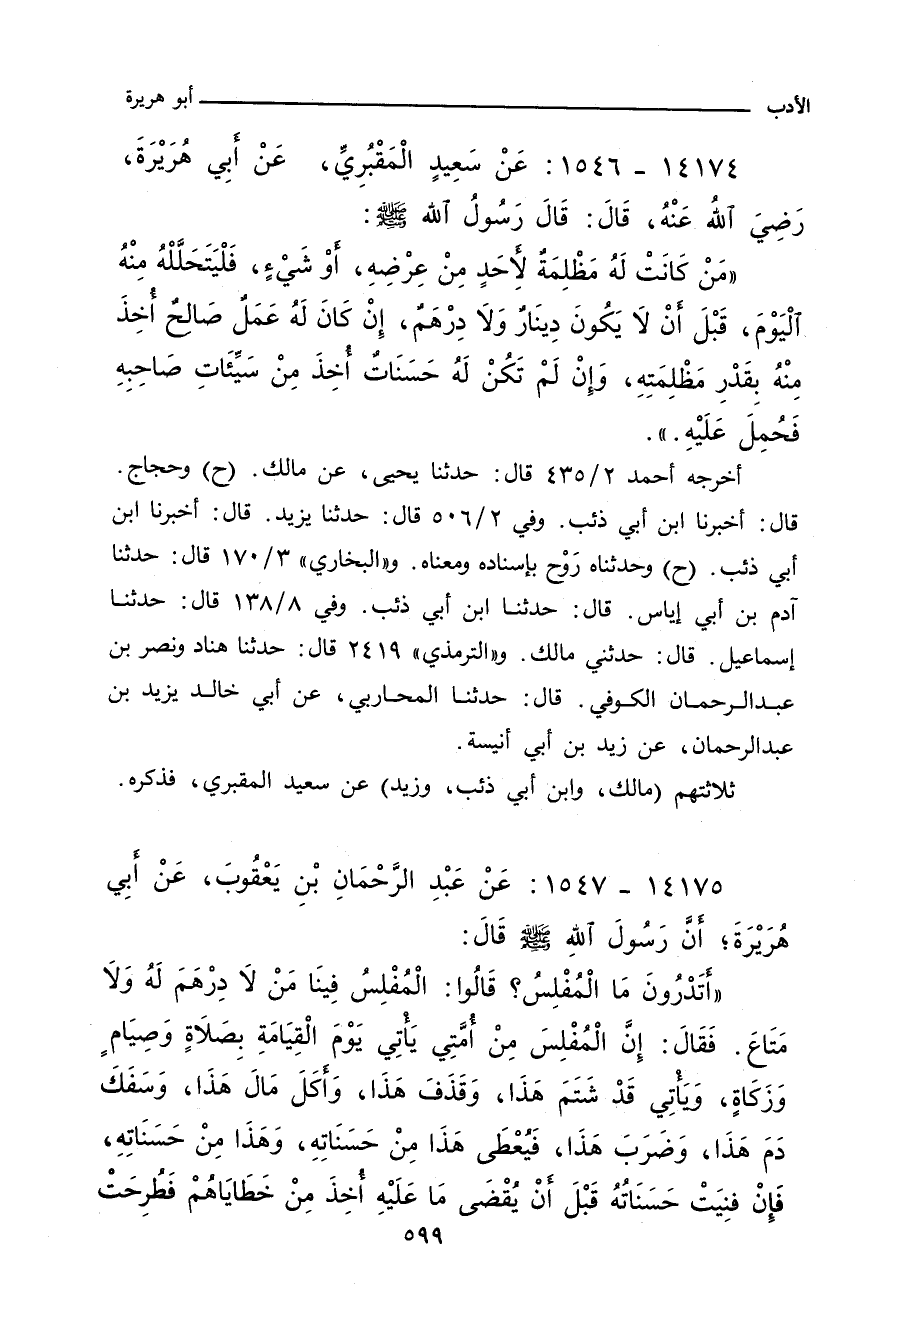 الأدب ــــــــــــــــــــــــــــــــــــــــ أبو هريرة
١٤١٧٤ - ١٥٤٦ : عَنْ سَعِيدٍ الْمَقْبُرِيِّ، عَنْ أَبِي هُرَيْرَةَ،
رَضِيَ ٱللهُ عَنْهُ، قَالَ: قَالَ رَسُولُ ٱلله ﷺ:
«مَنْ كَانَتْ لَهُ مَظْلِمَةٌ لأَحَدٍ مِنْ عِرْضِهِ، أَوْ شَيْءٍ، فَلْيَتَحَلَّلْهُ مِنْهُ
ٱلْيَوْمَ، قَبْلَ أَنْ لَا يَكُونَ دِينَارٌ وَلَا دِرْهَمٌ، إِنْ كَانَ لَهُ عَمَلٌ صَالِحٌ أُخِذَ
مِنْهُ بِقَدْرِ مَظْلِمَتِهِ، وَإِنْ لَمْ تَكُنْ لَهُ حَسَنَاتٌ أُخِذَ مِنْ سَيِّئَاتِ صَاحِبِهِ
فَحُمِلَ عَلَيْهِ.».
أخرجه أحمد ٤٣٥/٢ قال: حدثنا يحيى، عن مالك. (ح) وحجاج.
قال: أخبرنا ابن أبي ذئب. وفي ٥٠٦/٢ قال: حدثنا يزيد. قال: أخبرنا ابن
أبي ذئب. (ح) وحدثناه رَوْح بإسناده ومعناه. و«البخاري» ١٧٠/٣ قال: حدثنا
آدم بن أبي إياس. قال: حدثنا ابن أبي ذئب. وفي ١٣٨/٨ قال: حدثنا
إسماعيل. قال: حدثني مالك. و«الترمذي» ٢٤١٩ قال: حدثنا هناد ونصر بن
عبدالرحمان الكوفي. قال: حدثنا المحاربي، عن أبي خالد يزيد بن
عبدالرحمان، عن زيد بن أبي أنيسة.
ثلاثتهم (مالك، وابن أبي ذئب، وزيد) عن سعيد المقبري، فذكره.
١٤١٧٥ - ١٥٤٧ : عَنْ عَبْدِ الرَّحْمَانِ بْنِ يَعْقُوبَ، عَنْ أَبِي
هُرَيْرَةَ؛ أَنَّ رَسُولَ ٱللهِ ﷺ قَالَ:
«أَتَدْرُونَ مَا الْمُفْلِسُ؟ قَالُوا: الْمُفْلِسُ فِينَا مَنْ لَا دِرْهَمَ لَهُ وَلَا
مَتَاعَ. فَقَالَ: إِنَّ الْمُفْلِسَ مِنْ أُمَّتِي يَأْتِي يَوْمَ الْقِيَامَةِ بِصَلَاةٍ وَصِيَامٍ
وَزَكَاةٍ، وَيَأْتِي قَدْ شَتَمَ هَذَا، وَقَذَفَ هَذَا، وَأَكَلَ مَالَ هَذَا، وَسَفَكَ
دَمَ هَذَا، وَضَرَبَ هَذَا، فَيُعْطَى هَذَا مِنْ حَسَنَاتِهِ، وَهَذَا مِنْ حَسَنَاتِهِ،
فَإِنْ فَنِيَتْ حَسَنَاتُهُ قَبْلَ أَنْ يُقْضَى مَا عَلَيْهِ أُخِذَ مِنْ خَطَايَاهُمْ فَطُرِحَتْ
٥٩٩